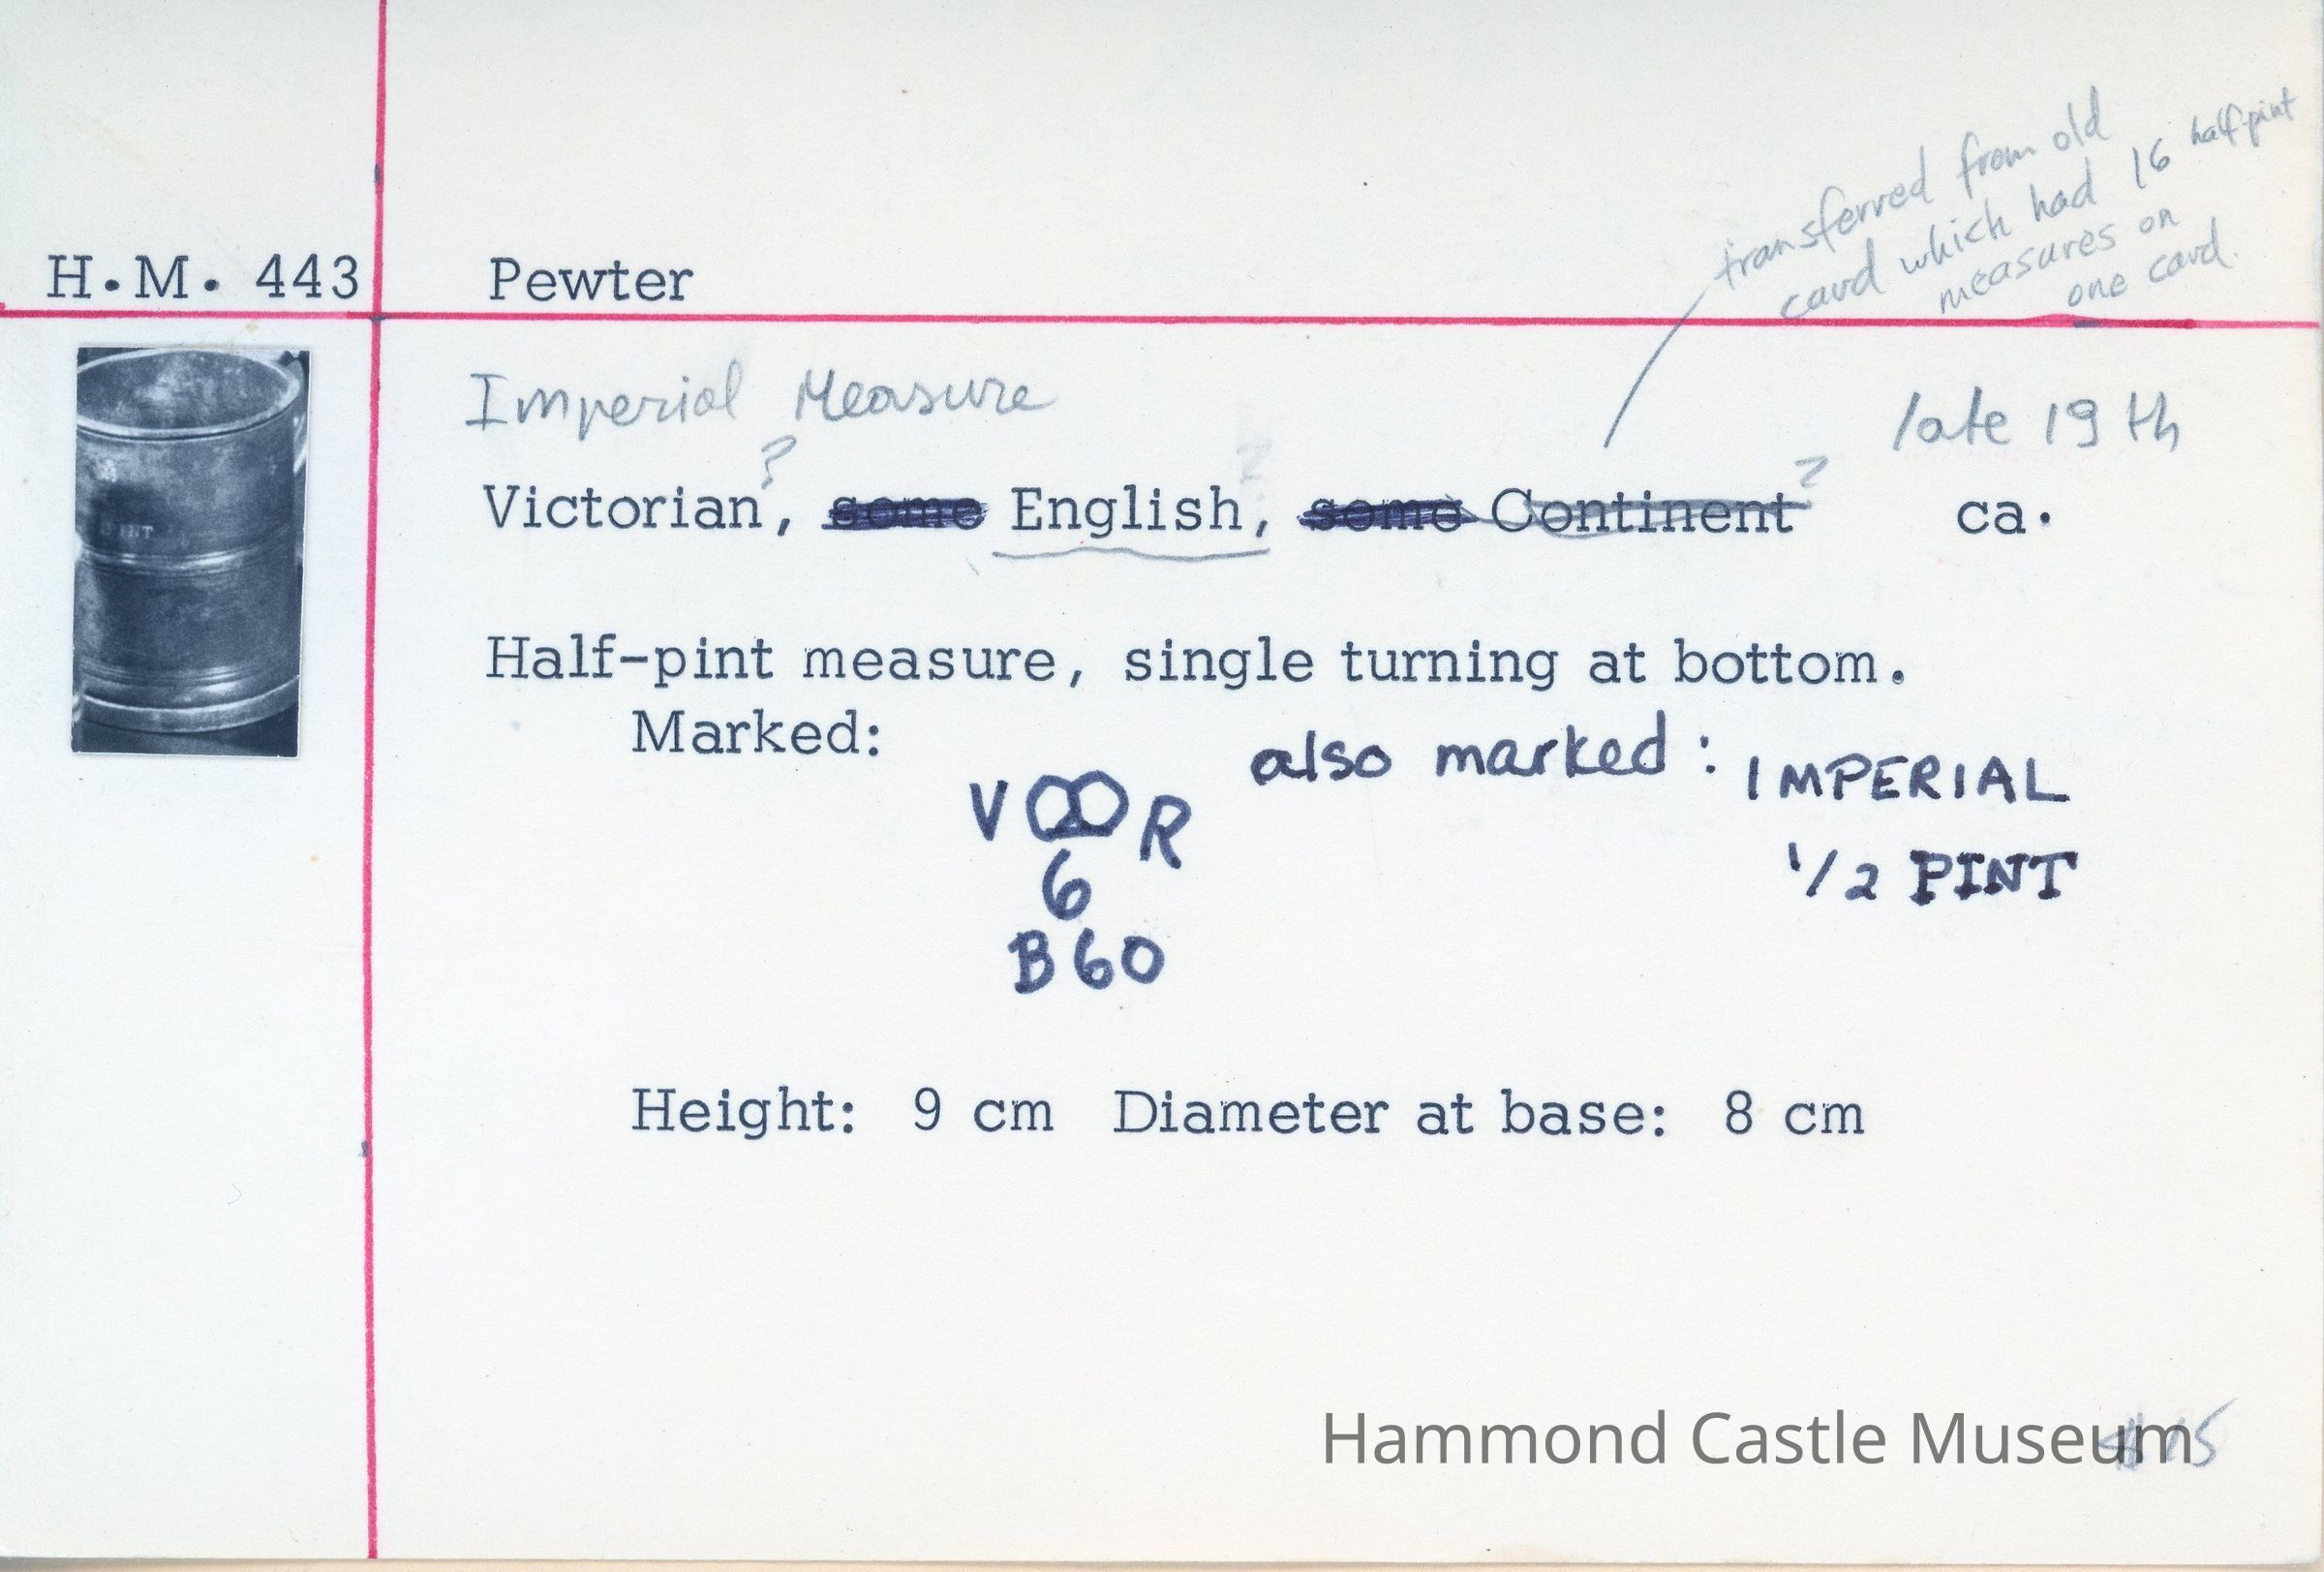 transferred from old
card which had 16 half-pint
measures on
one card.
H.M. 443 Pewter
Imperial Measure
late 19th
Victorian?, some English, some Continent? ca.
PINT
Half-pint measure, single turning at bottom.
Marked:
also marked: IMPERIAL
1/2 PINT
V R
6
B60
Height: 9 cm Diameter at base: 8 cm
Hammond Castle Museum